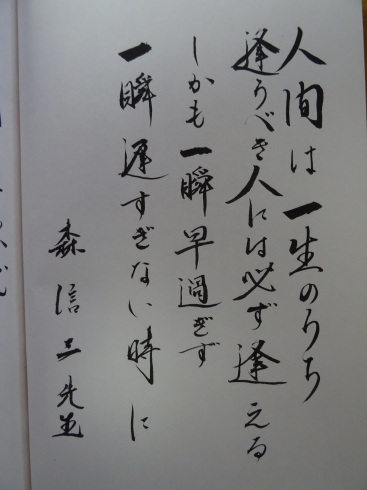 人間は一生のうち
逢うべき人には必ず逢える
しかも一瞬早過ぎず
一瞬遅すぎない時に
森信三先生